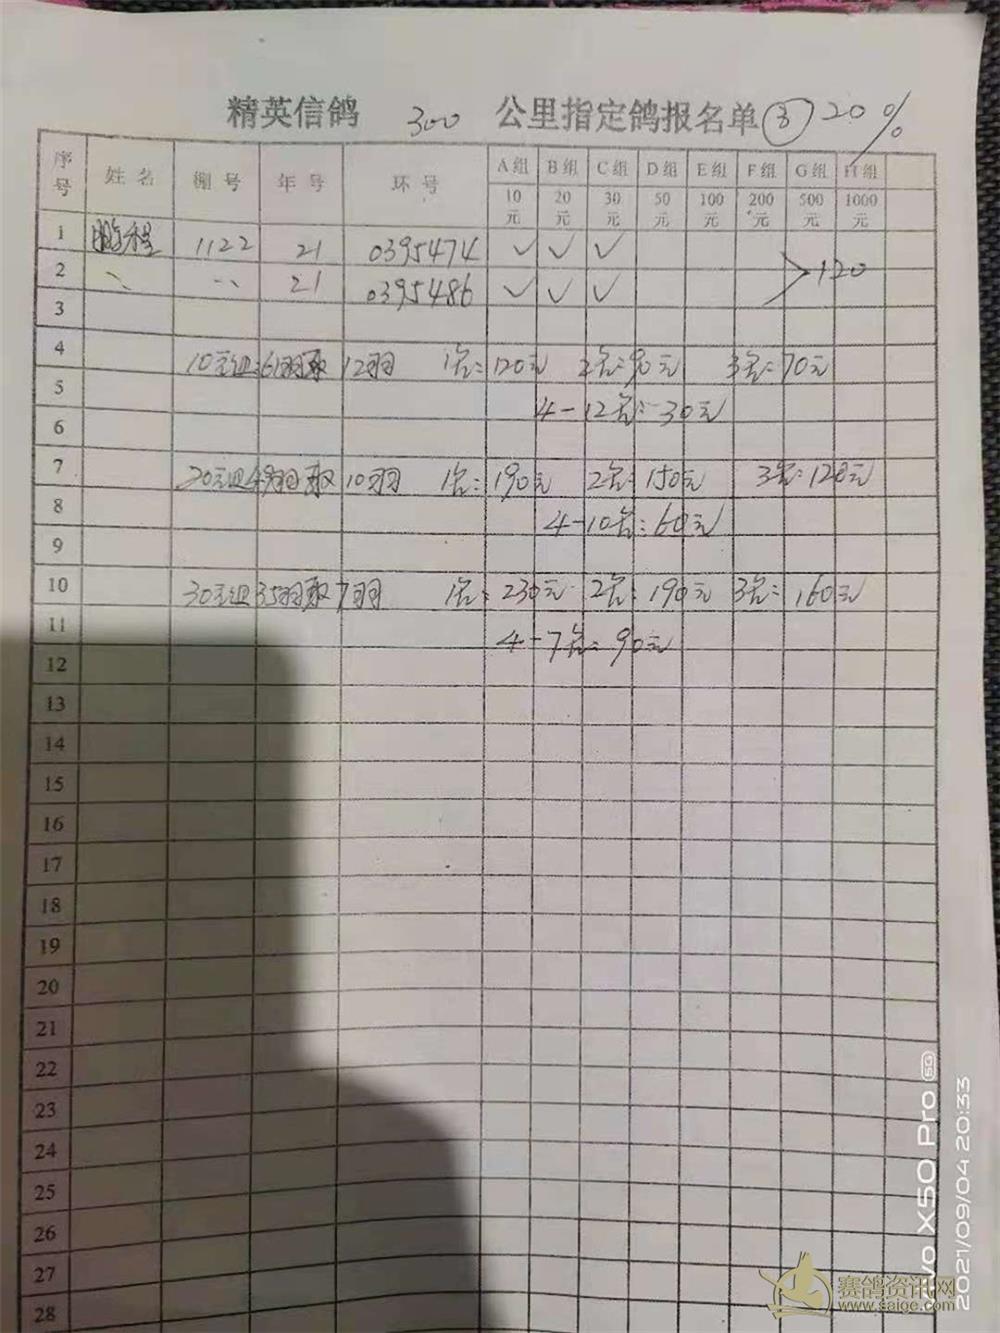 精英信鸽 300 公里指定鸽报名单 ③ 20%
序号 姓名 棚号 年号 环号 A组 B组 C组 D组 E组 F组 G组 H组
10元 20元 30元 50元 100元 200元 500元 1000元
1 鹏程 1122 21 0395474 ✓ ✓ ✓
2 〃 〃 21 0395486 ✓ ✓ ✓ 120
3
4 10元组:61羽取12羽 1名:120元 2名:90元 3名:70元
5 4-12名:30元
6
7 20元组49羽取10羽 1名:190元 2名:150元 3名:120元
8 4-10名:60元
9
10 30元组35羽取7羽 1名:230元 2名:190元 3名:160元
11 4-7名:90元
12
13
14
15
16
17
18
19
20
21
22
23
24
25
26
27
28
vivo X50 Pro 5G
2021/09/04 20:33
赛鸽资讯网
www.saige.com